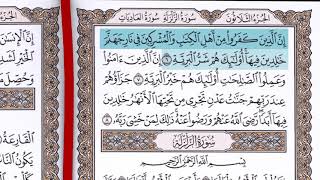 الجزء الثلاثون
سورة الزلزلة سورة العاديات
الجزء الثلاثون
إِنَّ ٱلَّذِينَ كَفَرُوا۟ مِنْ أَهْلِ ٱلْكِتَٰبِ وَٱلْمُشْرِكِينَ فِى نَارِ جَهَنَّمَ
خَٰلِدِينَ فِيهَآ أُو۟لَٰٓئِكَ هُمْ شَرُّ ٱلْبَرِيَّةِ ٦ إِنَّ ٱلَّذِينَ ءَامَنُوا۟
وَعَمِلُوا۟ ٱلصَّٰلِحَٰتِ أُو۟لَٰٓئِكَ هُمْ خَيْرُ ٱلْبَرِيَّةِ ٧ جَزَآؤُهُمْ
عِندَ رَبِّهِمْ جَنَّٰتُ عَدْنٍ تَجْرِى مِن تَحْتِهَا ٱلْأَنْهَٰرُ خَٰلِدِينَ
فِيهَآ أَبَدًا رَّضِىَ ٱللَّهُ عَنْهُمْ وَرَضُوا۟ عَنْهُ ذَٰلِكَ لِمَنْ خَشِىَ رَبَّهُۥ ٨
سورة الزلزلة
بسم الله الرحمن الرحيم
إِنَّ ٱلْإِنسَٰنَ
ٱلْخَيْرِ لَشَدِيدٌ
وَحُصِّلَ
ٱلْقَارِعَةُ
يَكُونُ ٱلنَّاسُ